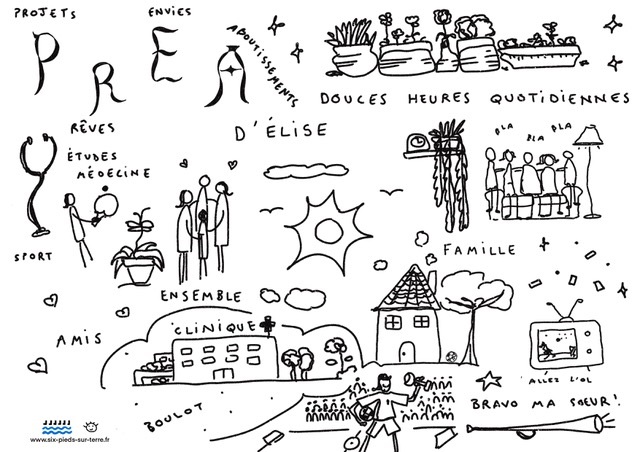 PROJETS
ENVIES
P R E A
ABOUTISSEMENTS
DOUCES HEURES QUOTIDIENNES
RÊVES
D'ÉLISE
BLA BLA BLA
ÉTUDES
MÉDECINE
SPORT
FAMILLE
ENSEMBLE
AMIS
CLINIQUE
ALLEZ L'OL
BRAVO MA SOEUR!
BOULOT
www.six-pieds-sur-terre.fr